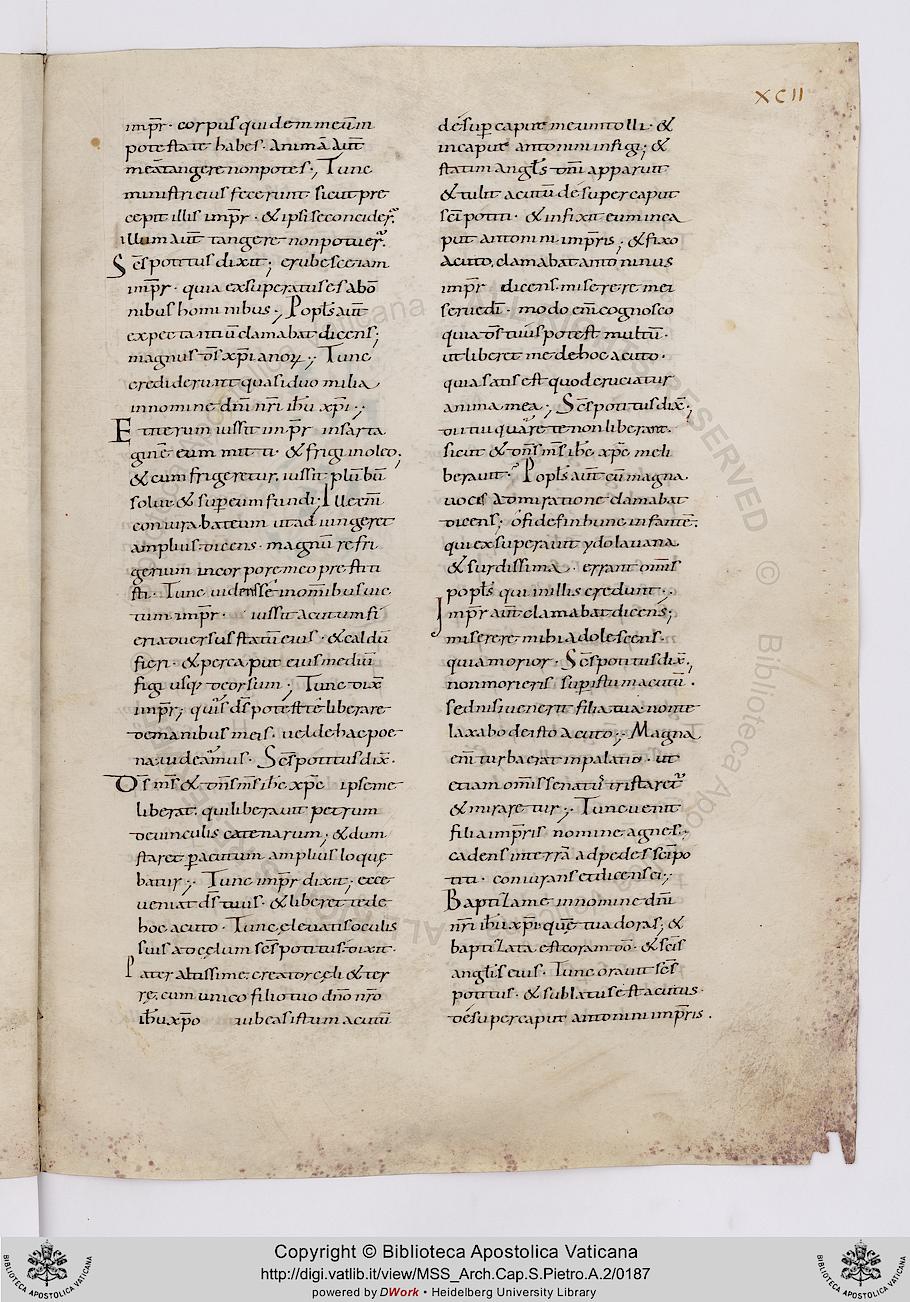 XCII
imp̄r · corpus quidem meūm
potestate habes · Animā aut̄
meā tangere non potes ·, Tunc
ministri eius fecerunt sicut pre
cepit illis imp̄r · & ipsi se conciderᷓ
illum aut̄ tangere non potuerᷓ
Sc̄s potitus dixit ; erubesce iam
imp̄r · quia exsuperatus es abō
nibus hominibus ·, Popl̄s aut̄
expectantiū clamabat dicens ;
magnus ds̄ xp̄ianoꝝ ·, Tunc
crediderunt quasi duo milia
in nomine dn̄i nr̄i ih̄u xp̄i ·,
Et iterum iussit imp̄r in sarta
ginē eum mitti · & frigi in oleo ;
& cum frigeretur · iussit plūbū
solui & sup eum fundi · Ille em̄
coniurabat eum ut adiungeret
amplius dicens · magnū refri
gerium in corpore meo prestiti
sti · Tunc uidens se in om̄ibus uic
tum imp̄r · iussit acutum fi
eri aduersus statū eius · & caldū
fieri · & per caput eius mediū
figi usq; deorsum ·, Tunc dix̄
imp̄r ; quis ds̄ potest te liberare
de manibus meis · uel de hac poe
na uideamus · Sc̄s potitus dix̄ ·
Ds̄ ms̄ & dn̄s ms̄ ih̄c xp̄c ipse me
liberat · qui liberauit petrum
de uinculis catenarum ; & dum
staret p acutum amplius loquę
batur ·, Tunc imp̄r dixit ; ecce
ueniat ds̄ tuus · & liberet te de
hoc acuto · Tunc eleuatis oculis
suis ad cęlum sc̄s potitus dixit ·
Pater altissime creator cęli & ter
rę · cum unico filio tuo dn̄o nr̄o
ih̄u xp̄o iubeas istum acutū
desup capite meum tolli · &
in capite antonini infigi ; &
statim angl̄s dn̄i apparuit
& tulit acutū de super caput
sc̄i potiti · & infixit eum in ca
put antonini imp̄ris ; & fixo
acuto, clamabat antoninus
imp̄r dicens · miserere mei
serue dī · modo em̄ cognosco
quia ds̄ tuus potest multū ·
ut liberet me de hoc acuto ·
quia satis est quod cruciatur
anima mea ·, Sc̄s potitus dix̄ ;
dii tui quare te non liberant ·
sicut & dn̄s ms̄ ih̄c xp̄c me li
berauit · Popl̄s aut̄ cū magna
uoces admiratione clamabat
dicens ; o fides in hunc infantē ;
qui exsuperauit ydola uana
& surdissima · errant om̄s
popl̄s qui in illis credunt ·,
Imp̄r aut̄ clamabat dicens ;
miserere mihi adolescens ·
quia morior · Sc̄s potitus dix̄ ;
non morieris sup istum acutū ·
sed nisi uenerit filia tua non te
laxabo de isto acuto ·, Magna
em̄ turba erat in palatio · ut
etiam om̄is senatus tristaretᷓ
& miraretur ·, Tunc uenit
filia imp̄ris nomine agnes ·,
cadens in terrā ad pedes sc̄i po
titi · coniurans et dicens ei ·,
Baptiza me in nomine dn̄i
nr̄i ih̄u xp̄i quē tu adoras ; &
baptizata est coram dō · & sc̄is
angl̄is eius · Tunc orauit sc̄s
potitus · & sublatus est acutus ·
de super caput antonini imp̄ris .
Copyright © Biblioteca Apostolica Vaticana
http://digi.vatlib.it/view/MSS_Arch.Cap.S.Pietro.A.2/0187
powered by DWork • Heidelberg University Library